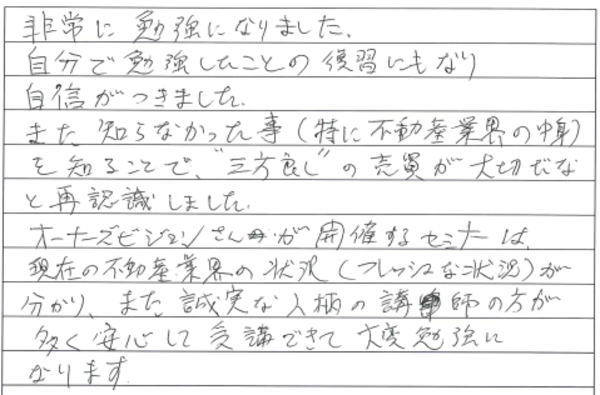 非常に勉強になりました。
自分で勉強したことの復習にもなり
自信がつきました。
また、知らなかった事（特に不動産業界の中身）
を知ることで、"三方良し"の売買が大切だな
と再認識しました。
オーナーズビジョンさんが開催するセミナーは、
現在の不動産業界の状況（フレッシュな状況）が
分かり、また、誠実な人柄の講師の方が
多く安心して受講できて大変勉強に
なります。